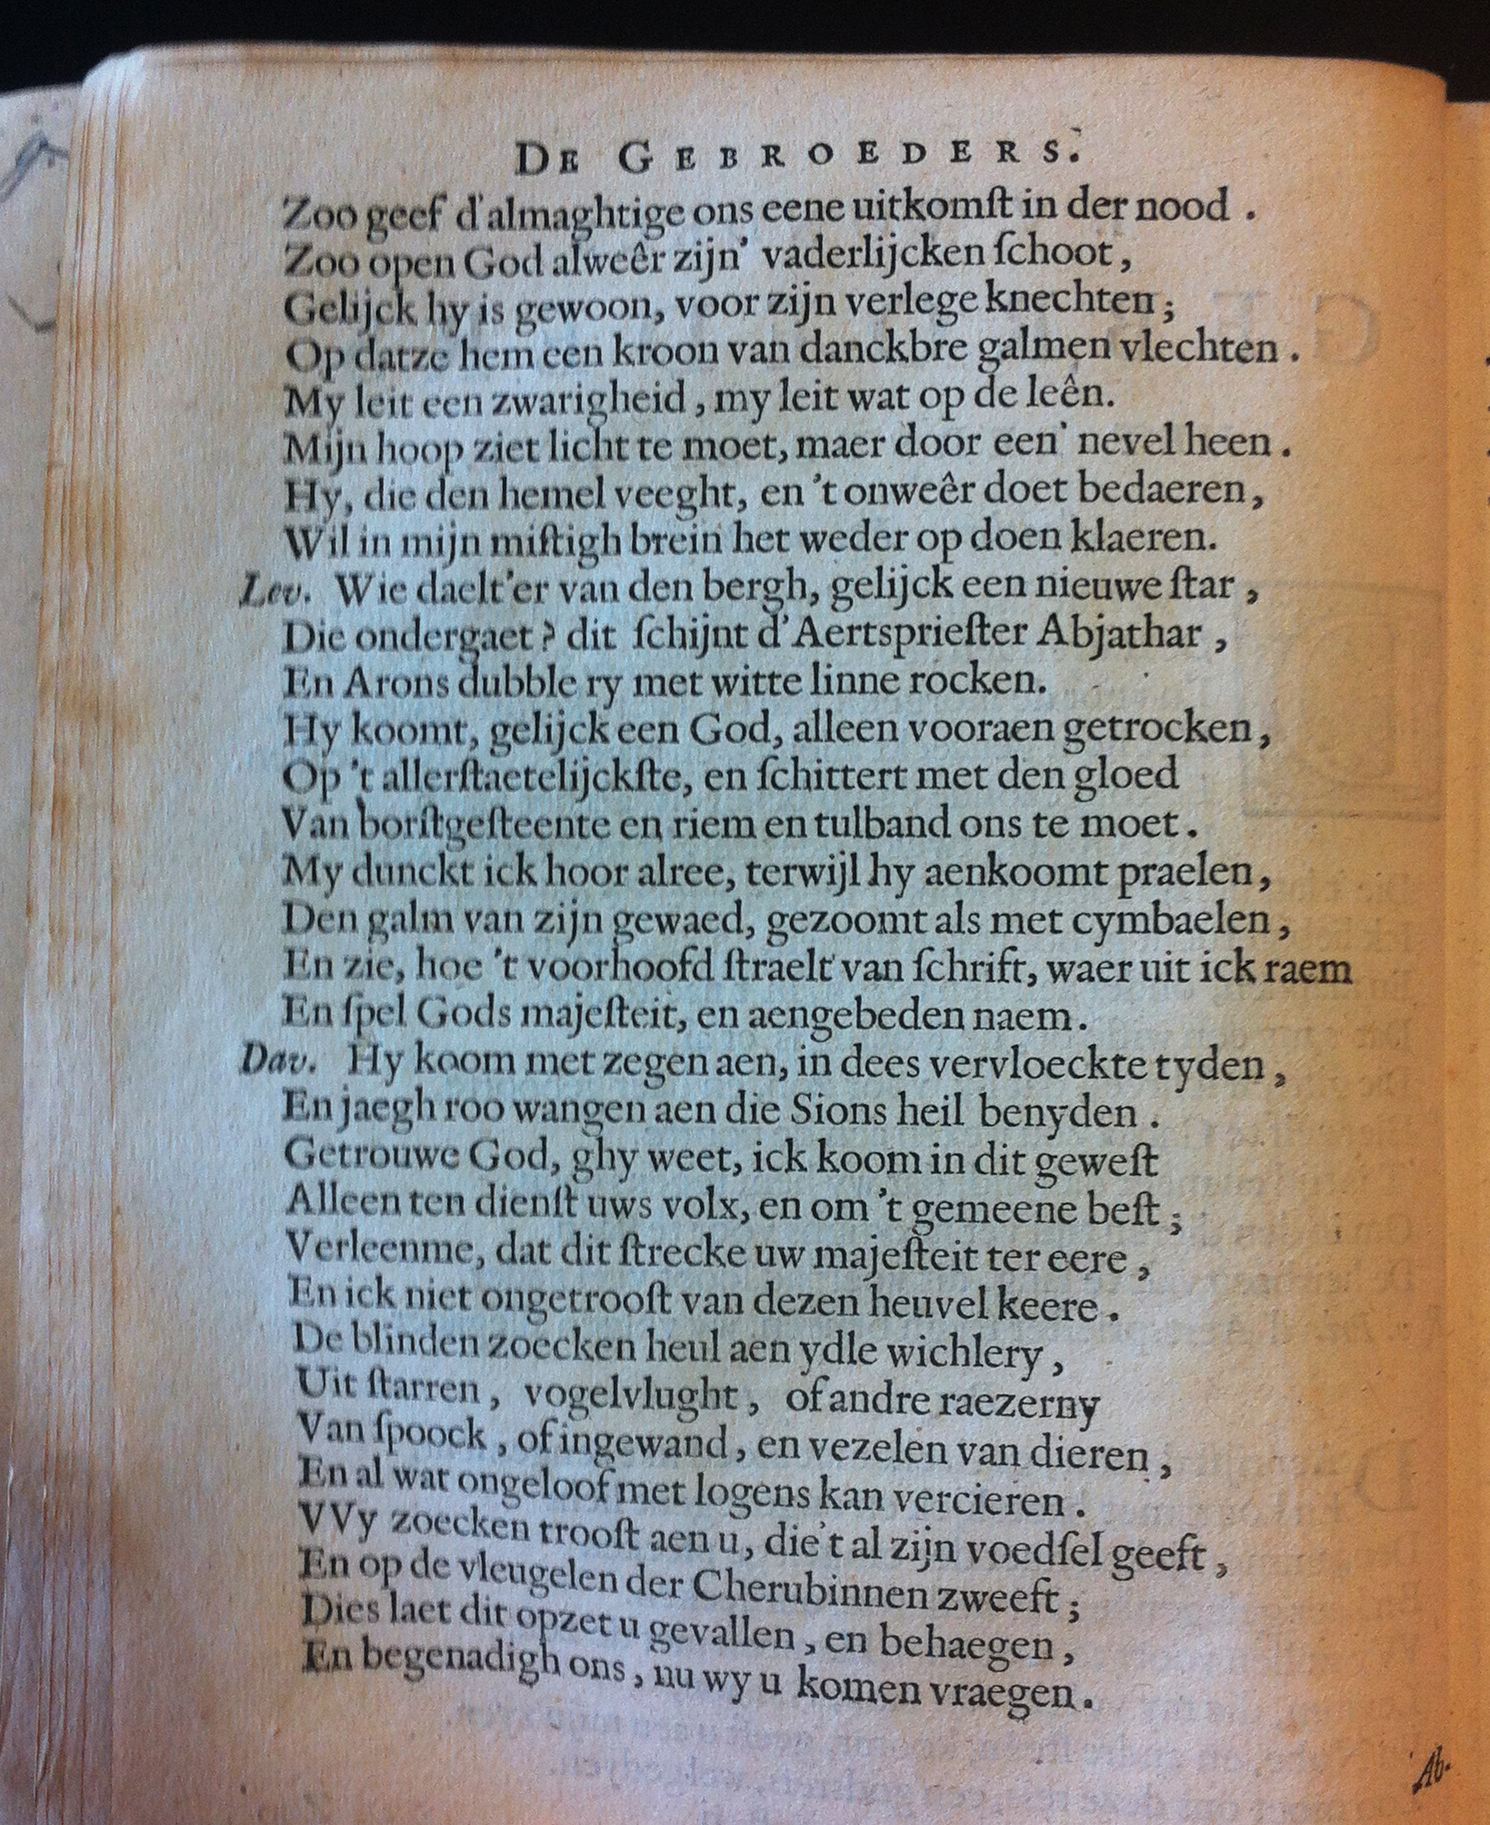 DE GEBROEDERS.
Zoo geef d'almaghtige ons eene uitkomſt in der nood .
Zoo open God alweêr zijn' vaderlijcken ſchoot,
Gelijck hy is gewoon, voor zijn verlege knechten;
Op datze hem een kroon van danckbre galmen vlechten .
My leit een zwarigheid, my leit wat op de leên.
Mijn hoop ziet licht te moet, maer door een' nevel heen .
Hy, die den hemel veeght, en 't onweêr doet bedaeren,
Wil in mijn miſtigh brein het weder op doen klaeren.
Lev. Wie daelt'er van den bergh, gelijck een nieuwe ſtar ,
Die ondergaet? dit ſchijnt d'Aertsprieſter Abjathar ,
En Arons dubble ry met witte linne rocken.
Hy koomt, gelijck een God, alleen vooraen getrocken,
Op 't allerſtaetelijckſte, en ſchittert met den gloed
Van borſtgeſteente en riem en tulband ons te moet.
My dunckt ick hoor alree, terwijl hy aenkoomt praelen,
Den galm van zijn gewaed, gezoomt als met cymbaelen,
En zie, hoe 't voorhoofd ſtraelt van ſchrift, waer uit ick raem
En ſpel Gods majeſteit, en aengebeden naem.
Dav. Hy koom met zegen aen, in dees vervloeckte tyden,
En jaegh roo wangen aen die Sions heil benyden .
Getrouwe God, ghy weet, ick koom in dit geweſt
Alleen ten dienſt uws volx, en om 't gemeene beſt;
Verleenme, dat dit ſtrecke uw majeſteit ter eere ,
En ick niet ongetrooſt van dezen heuvel keere .
De blinden zoecken heul aen ydle wichlery ,
Uit ſtarren, vogelvlught, of andre raezerny
Van ſpoock , of ingewand, en vezelen van dieren ,
En al wat ongeloof met logens kan vercieren .
VVy zoecken trooſt aen u, die't al zijn voedſel geeft ,
En op de vleugelen der Cherubinnen zweeft;
Dies laet dit opzet u gevallen , en behaegen ,
En begenadigh ons , nu wy u komen vraegen .
Ab-